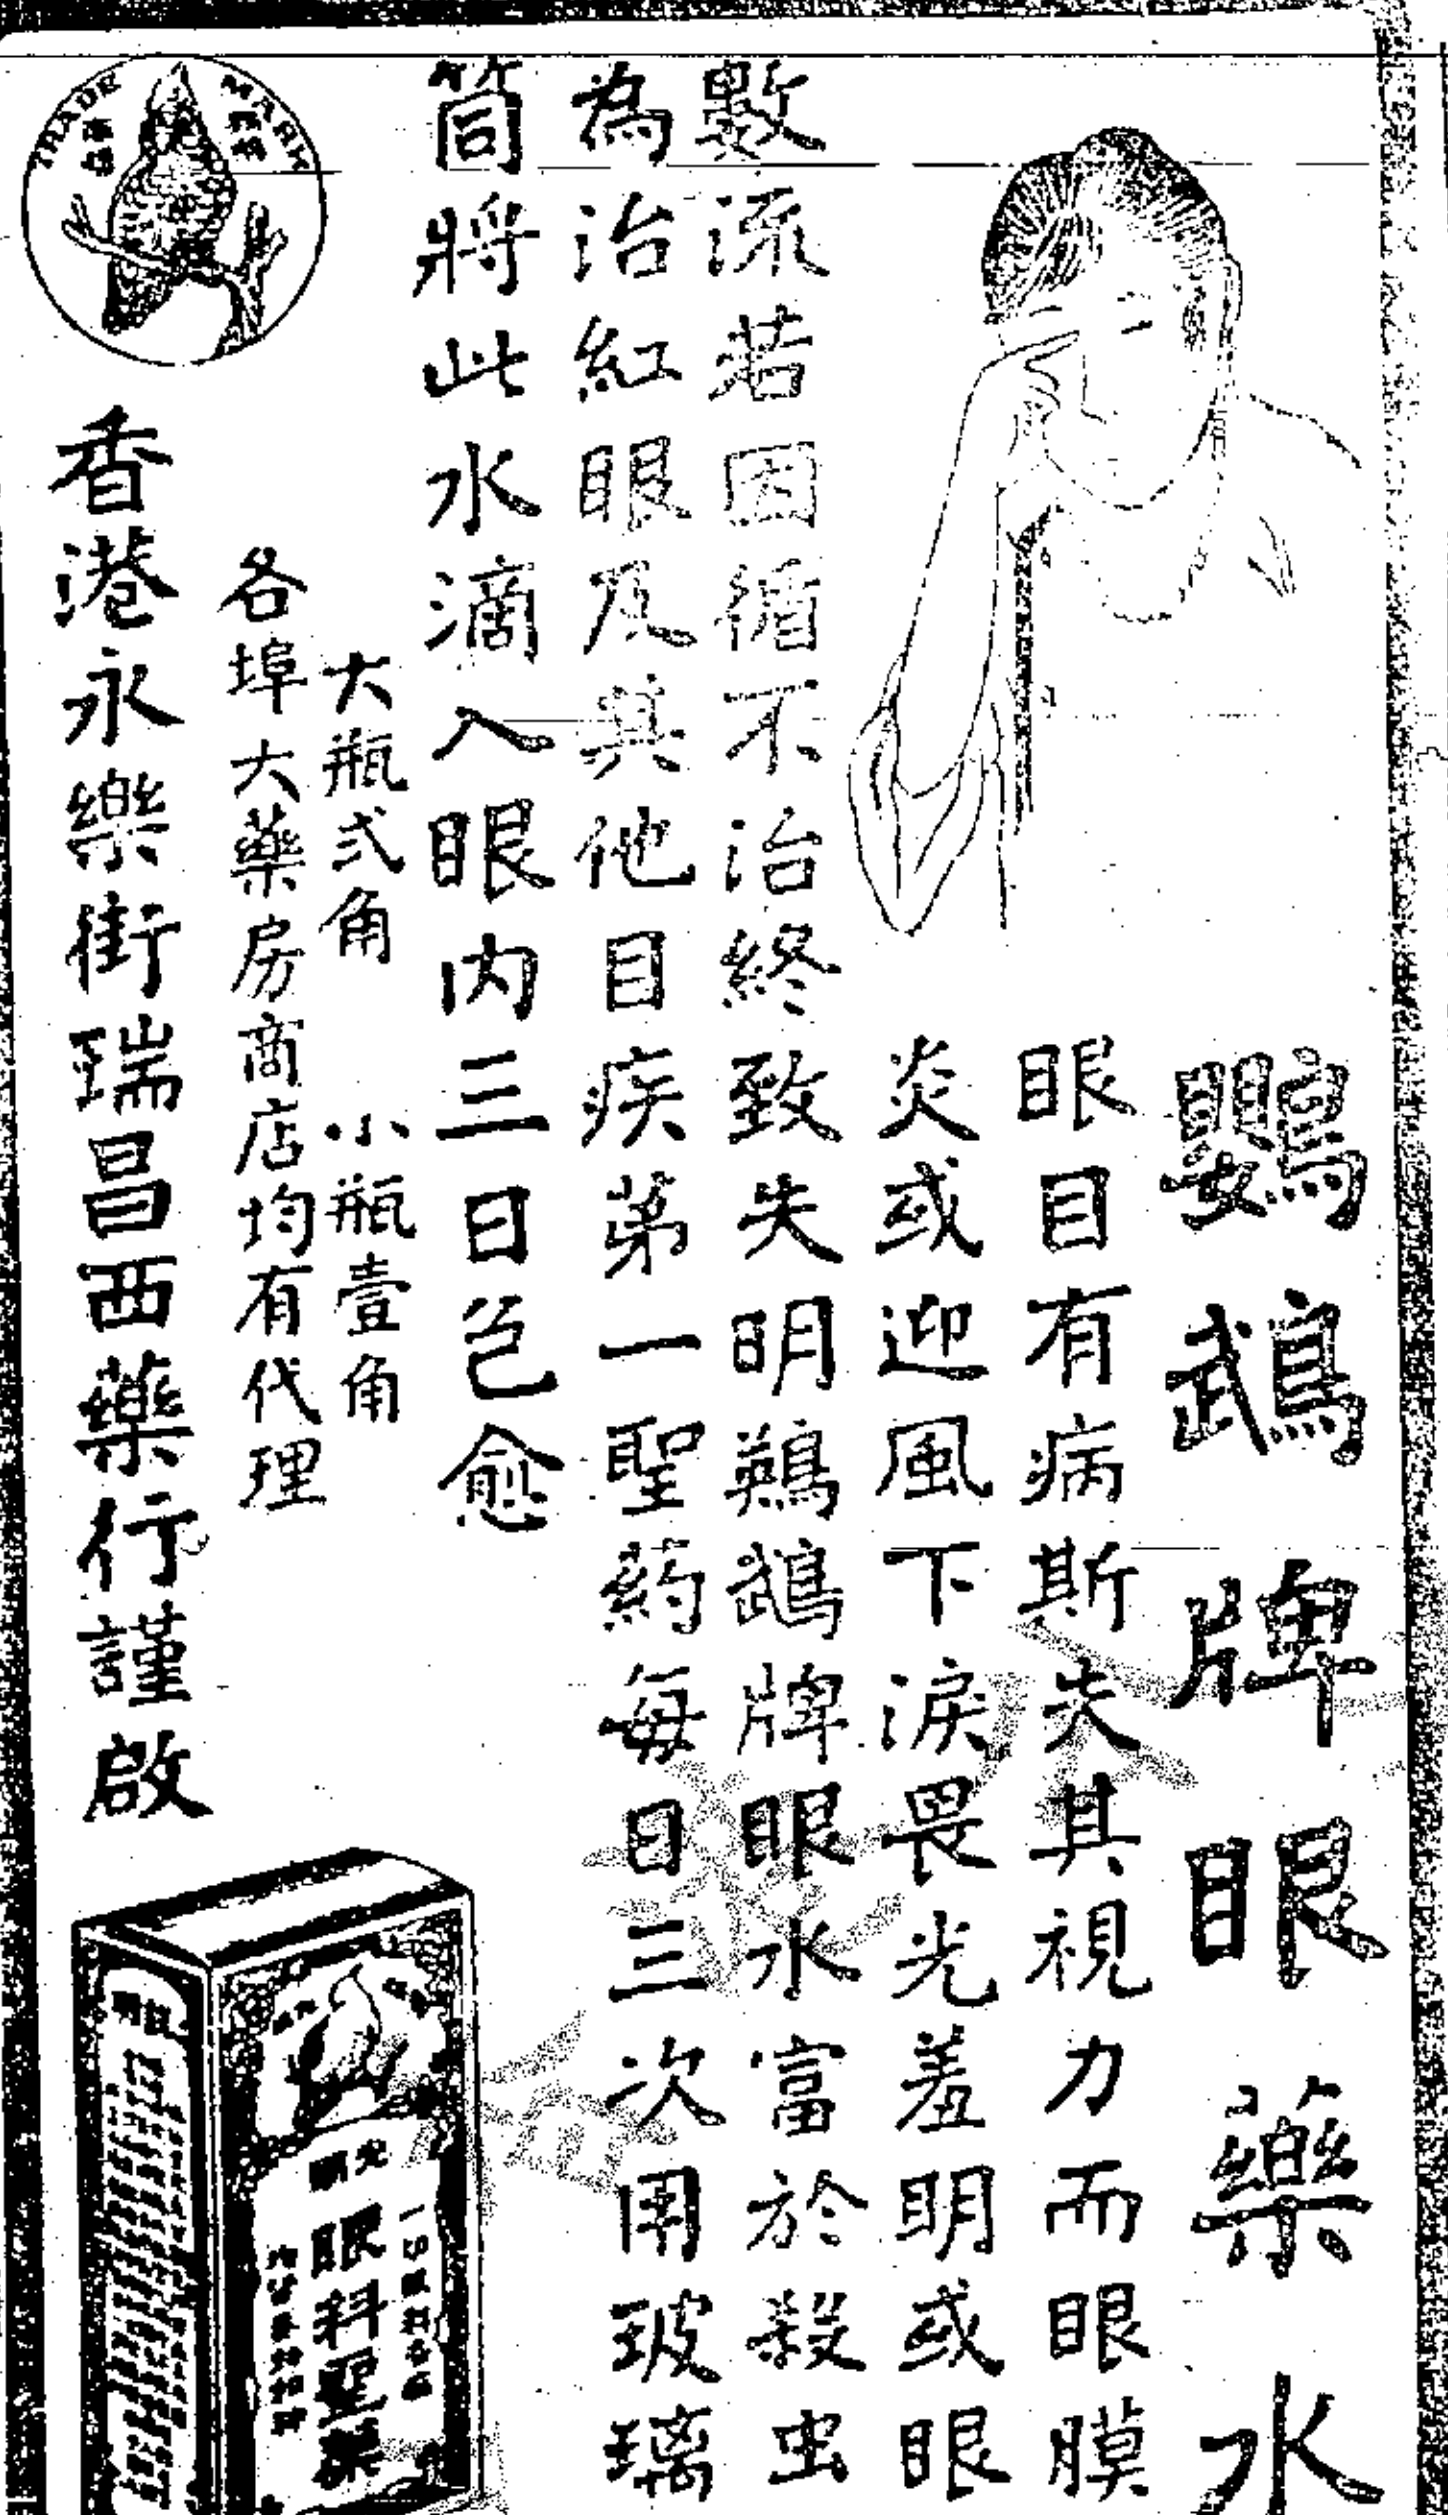 鸚鵡牌眼藥水
眼目有病斯失其視力而眼膜
炎或迎風下淚畏光羞明或眼
數流若因循不治終致失明鸚鵡牌眼水富於殺虫
為治紅眼及其他目疾苐一聖药每日三次用玻璃
筒將此水滴入眼內三日包愈
大瓶弍角 小瓶壹角
各埠大藥房商店均有代理
香港永樂街瑞昌西藥行謹啟
TRADE MARK
眼科聖藥